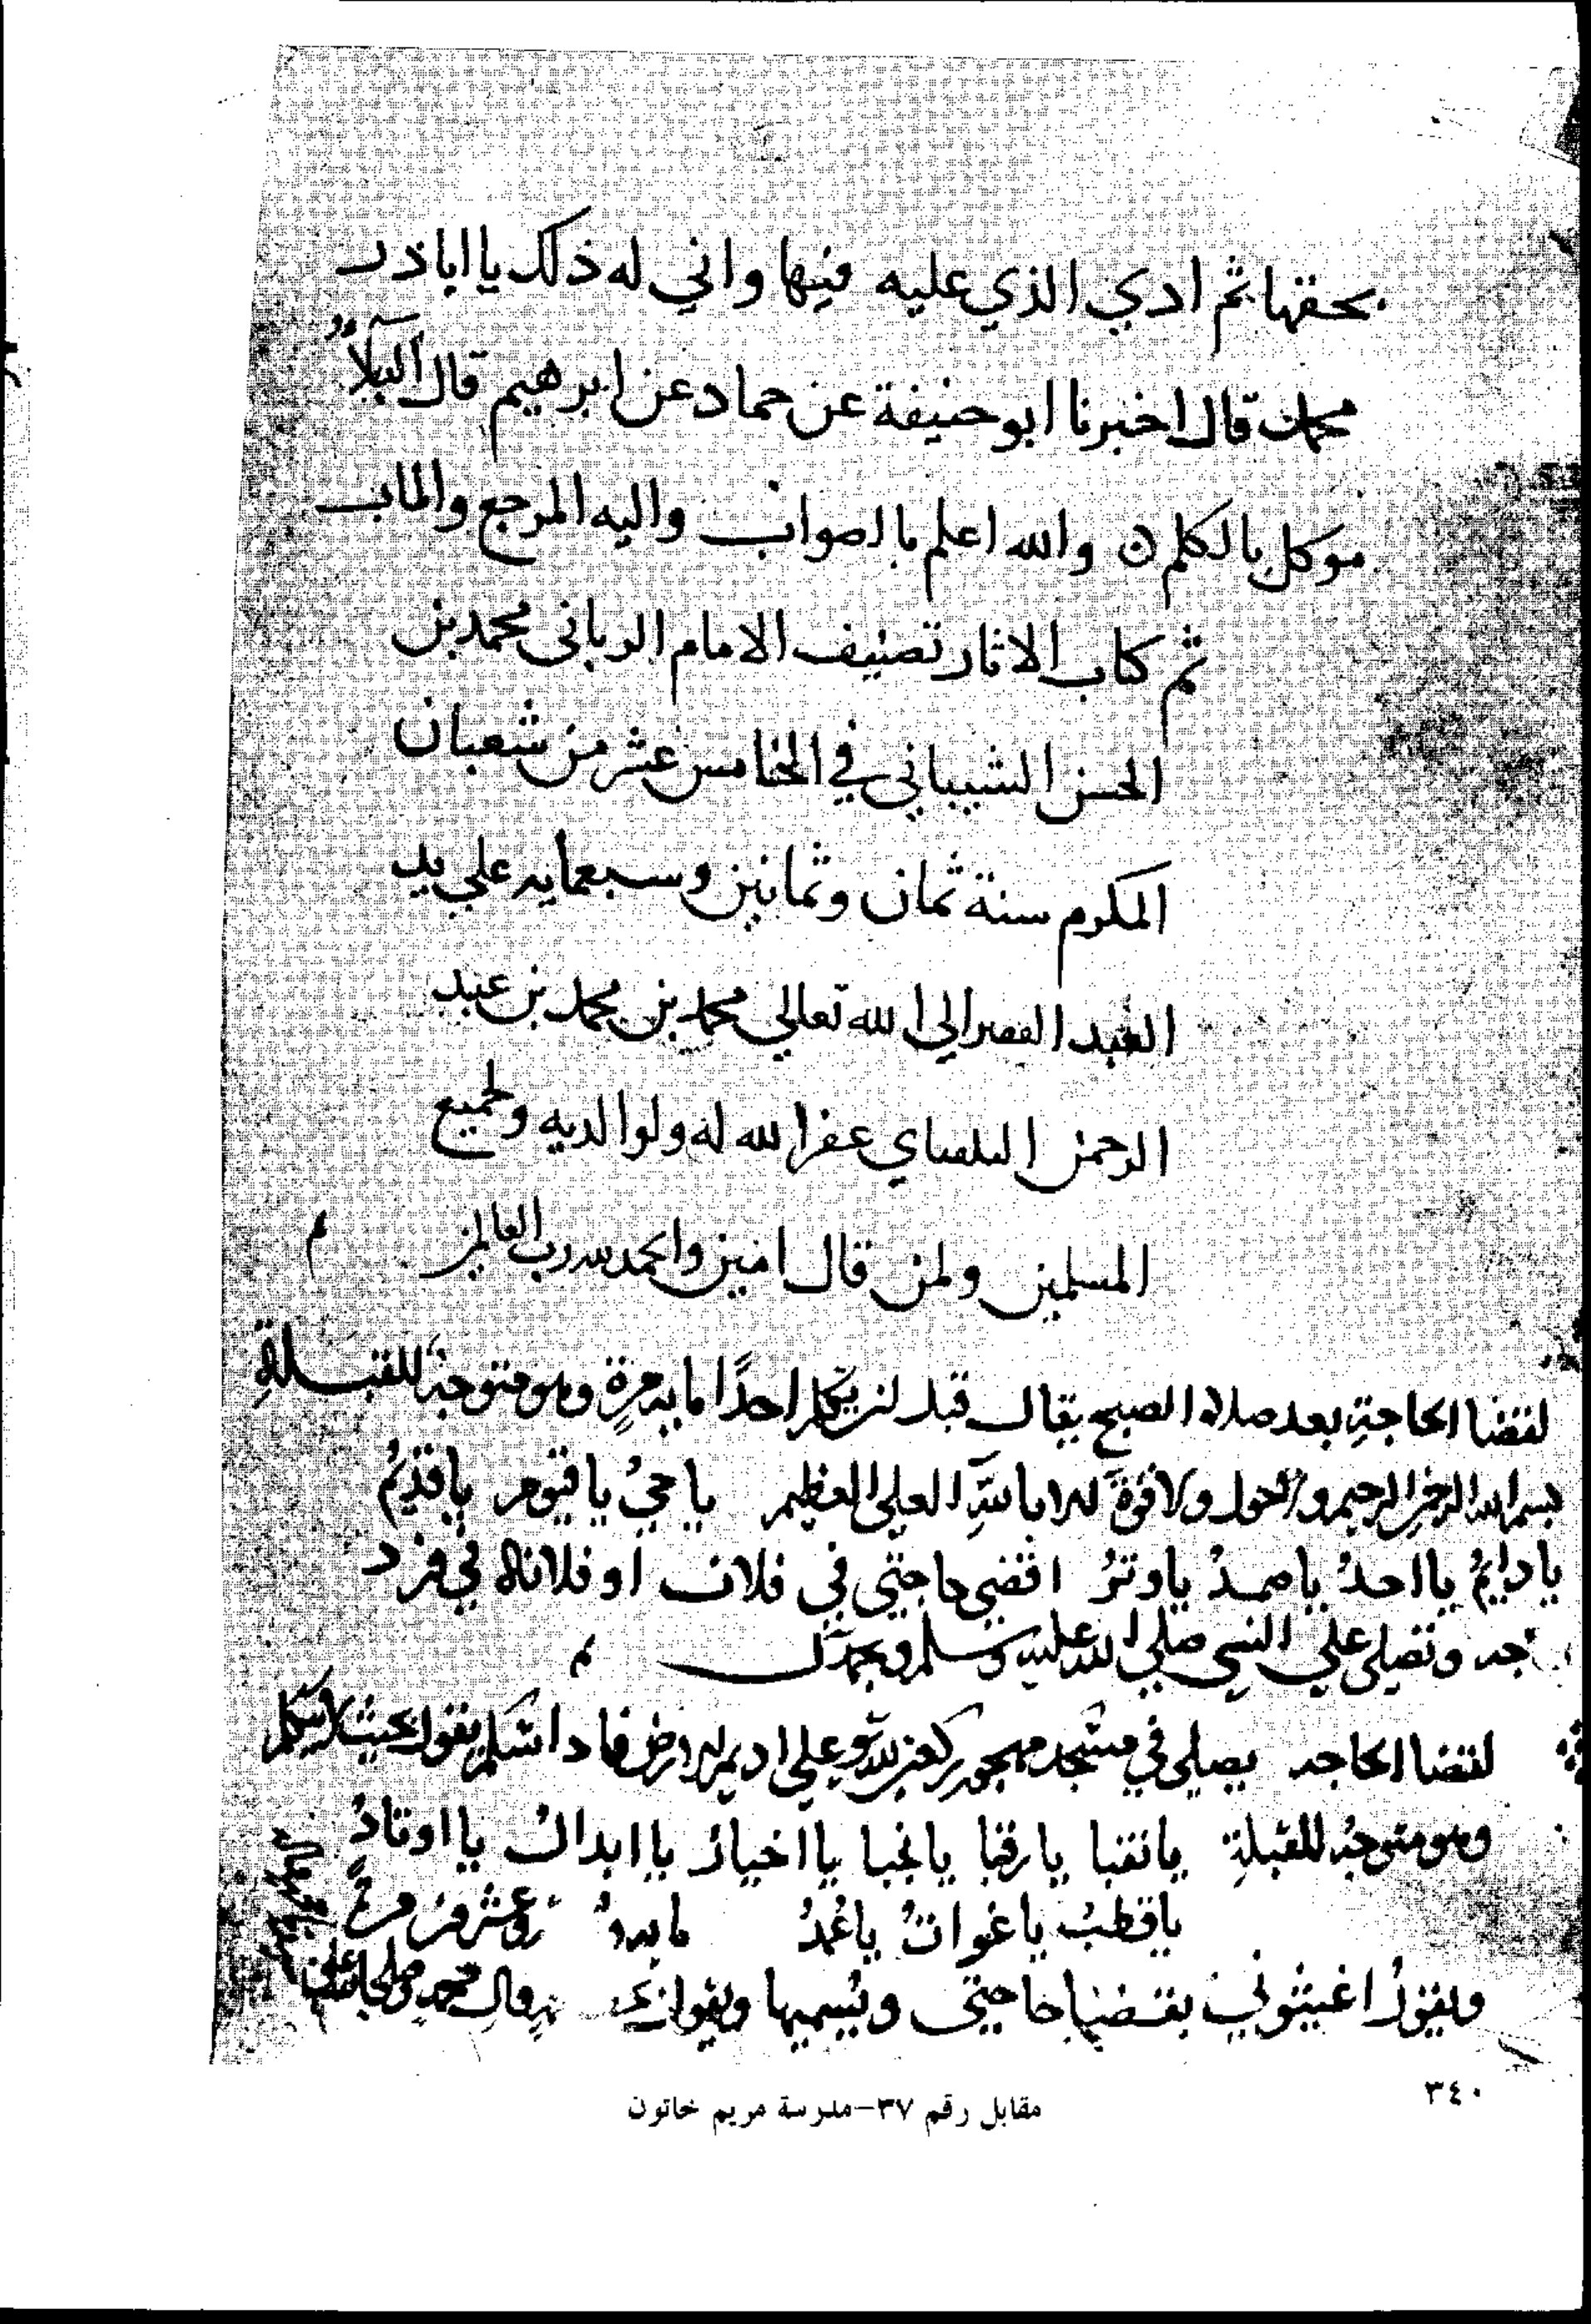 بحقها ثم ادي الذي عليه فيها واني له ذلك يا ابا ذر
محمد قال اخبرنا ابو حنيفة عن حماد عن ابرهيم قال البلاء
موكل بالكلم والله اعلم بالصواب واليه المرجع والماب
ثم كتاب الاثار تصنيف الامام الرباني محمد بن
الحسن الشيباني في الخامس عشر من شعبان
المكرم سنة ثمان وثمانين وسبعمايه علي يد
العبد الفقير الي الله تعالي محمد بن محمد بن عبد
الرحمن غفر الله له ولوالديه ولجميع
المسلمين ولمن قال امين والحمد لله رب العالمين
لقضا الحاجة بعد صلاة الصبح يقال قبل ان يكلم احدًا مايه مرة وهو متوجه للقبلة
بسم الله الرحمن الرحيم ولا حول ولا قوة الا بالله العلي العظيم يا حي يا قيوم يا قديم
يا دايم يا احد يا صمد يا وتر اقضي حاجتي في فلان او فلانة في
وتصلي علي النبي صلي الله عليه وسلم
لقضا الحاجه يصلي في مسجد مهجور ركعتين
وهو متوجه للقبلة يا نقبا يا رقبا يا نجبا يا اخيار يا ابدال يا اوتاد
يا قطب يا غواث
ويقول اغيثوني بقضا حاجتي ويسميها
٣٤٠
مقابل رقم ٣٧–مدرسة مريم خاتون